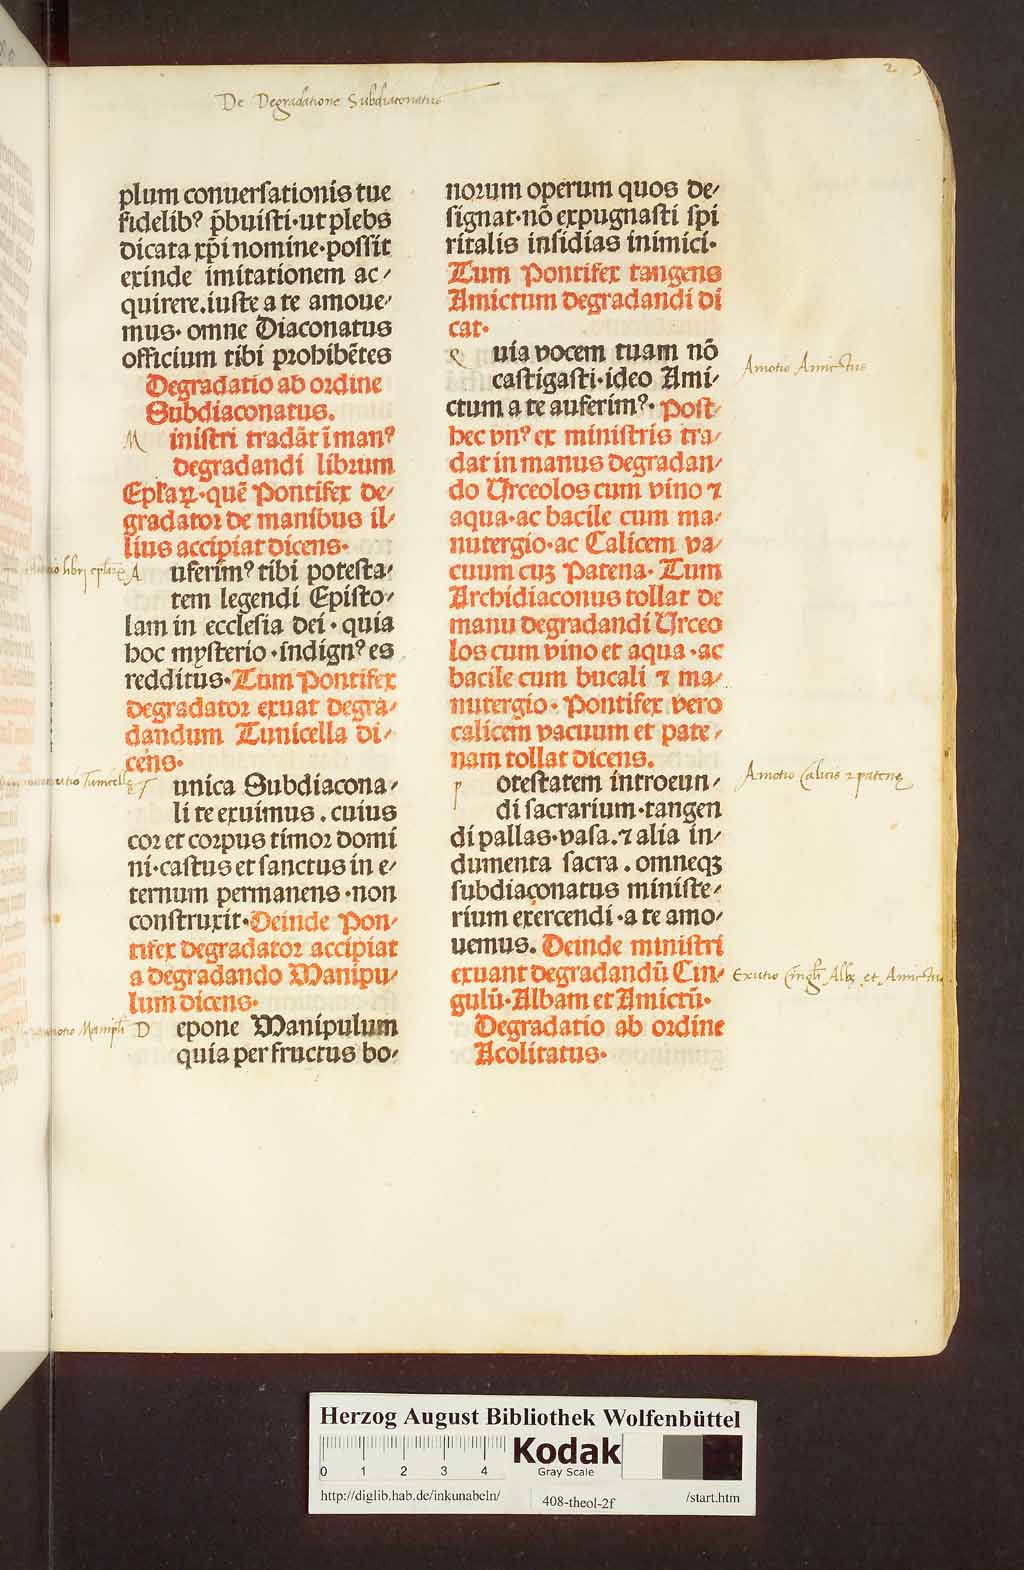 De Degradatione Subdiaconatus
plum conuersationis tue
fidelibꝰ p̄buisti·ut plebs
dicata xp̄i nomine·possit
exinde imitationem ac⸗
quirere.iuste a te amoue⸗
mus· omne Diaconatus
officium tibi prohibẽtes
Degradatio ab ordine
Subdiaconatus.
Ministri tradãt ĩ manꝰ
degradandi librum
Epl̃aꝝ·quẽ Pontifex de⸗
gradator de manibus il⸗
lius accipiat dicens·
libri epl̃arꝝ
Auferimꝰ tibi potesta⸗
tem legendi Episto⸗
lam in ecclesia dei·quia
hoc mysterio·indignꝰ es
redditus·Tum Pontifex
degradator exuat degra⸗
dandum Tunicella di⸗
cens·
Tunicellę
Tunica Subdiacona⸗
li te exuimus.cuius
cor et corpus timor domi
ni·castus et sanctus in e⸗
ternum permanens·non
construxit·Deinde Pon⸗
tifex degradator accipiat
a degradando Manipu⸗
lum dicens·
Manipl̃i
Depone Manipulum
quia per fructus bo⸗
norum operum quos de⸗
signat·nõ expugnasti spi
ritalis insidias inimici·
Tum Pontifex tangens
Amictum degradandi di
cat·
Quia vocem tuam nõ
castigasti·ideo Ami⸗
ctum a te auferimꝰ· Post⸗
Amotio Amictus
hec vnꝰ ex ministris tra⸗
dat in manus degradan⸗
do Urceolos cum vino ⁊
aqua·ac bacile cum ma⸗
nutergio·ac Calicem va⸗
cuum cuʒ Patena· Tum
Archidiaconus tollat de
manu degradandi Urceo
los cum vino et aqua·ac
bacile cum bucali ⁊ ma⸗
nutergio· Pontifex vero
calicem vacuum et pate⸗
nam tollat dicens.
Amotio Calicis ⁊ patenę
Potestatem introeun⸗
di sacrarium·tangen
di pallas·vasa.⁊ alia in⸗
dumenta sacra.omneqʒ
subdiaconatus ministe⸗
rium exercendi·a te amo⸗
uemus. Deinde ministri
exuant degradandũ Cin⸗
gulũ·Albam et Amictũ·
Exutio Cingl̃i Albę et Amictus
Degradatio ab ordine
Acolitatus·
Herzog August Bibliothek Wolfenbüttel
0 1 2 3 4
Kodak
Gray Scale
http://diglib.hab.de/inkunabeln/
408-theol-2f
/start.htm